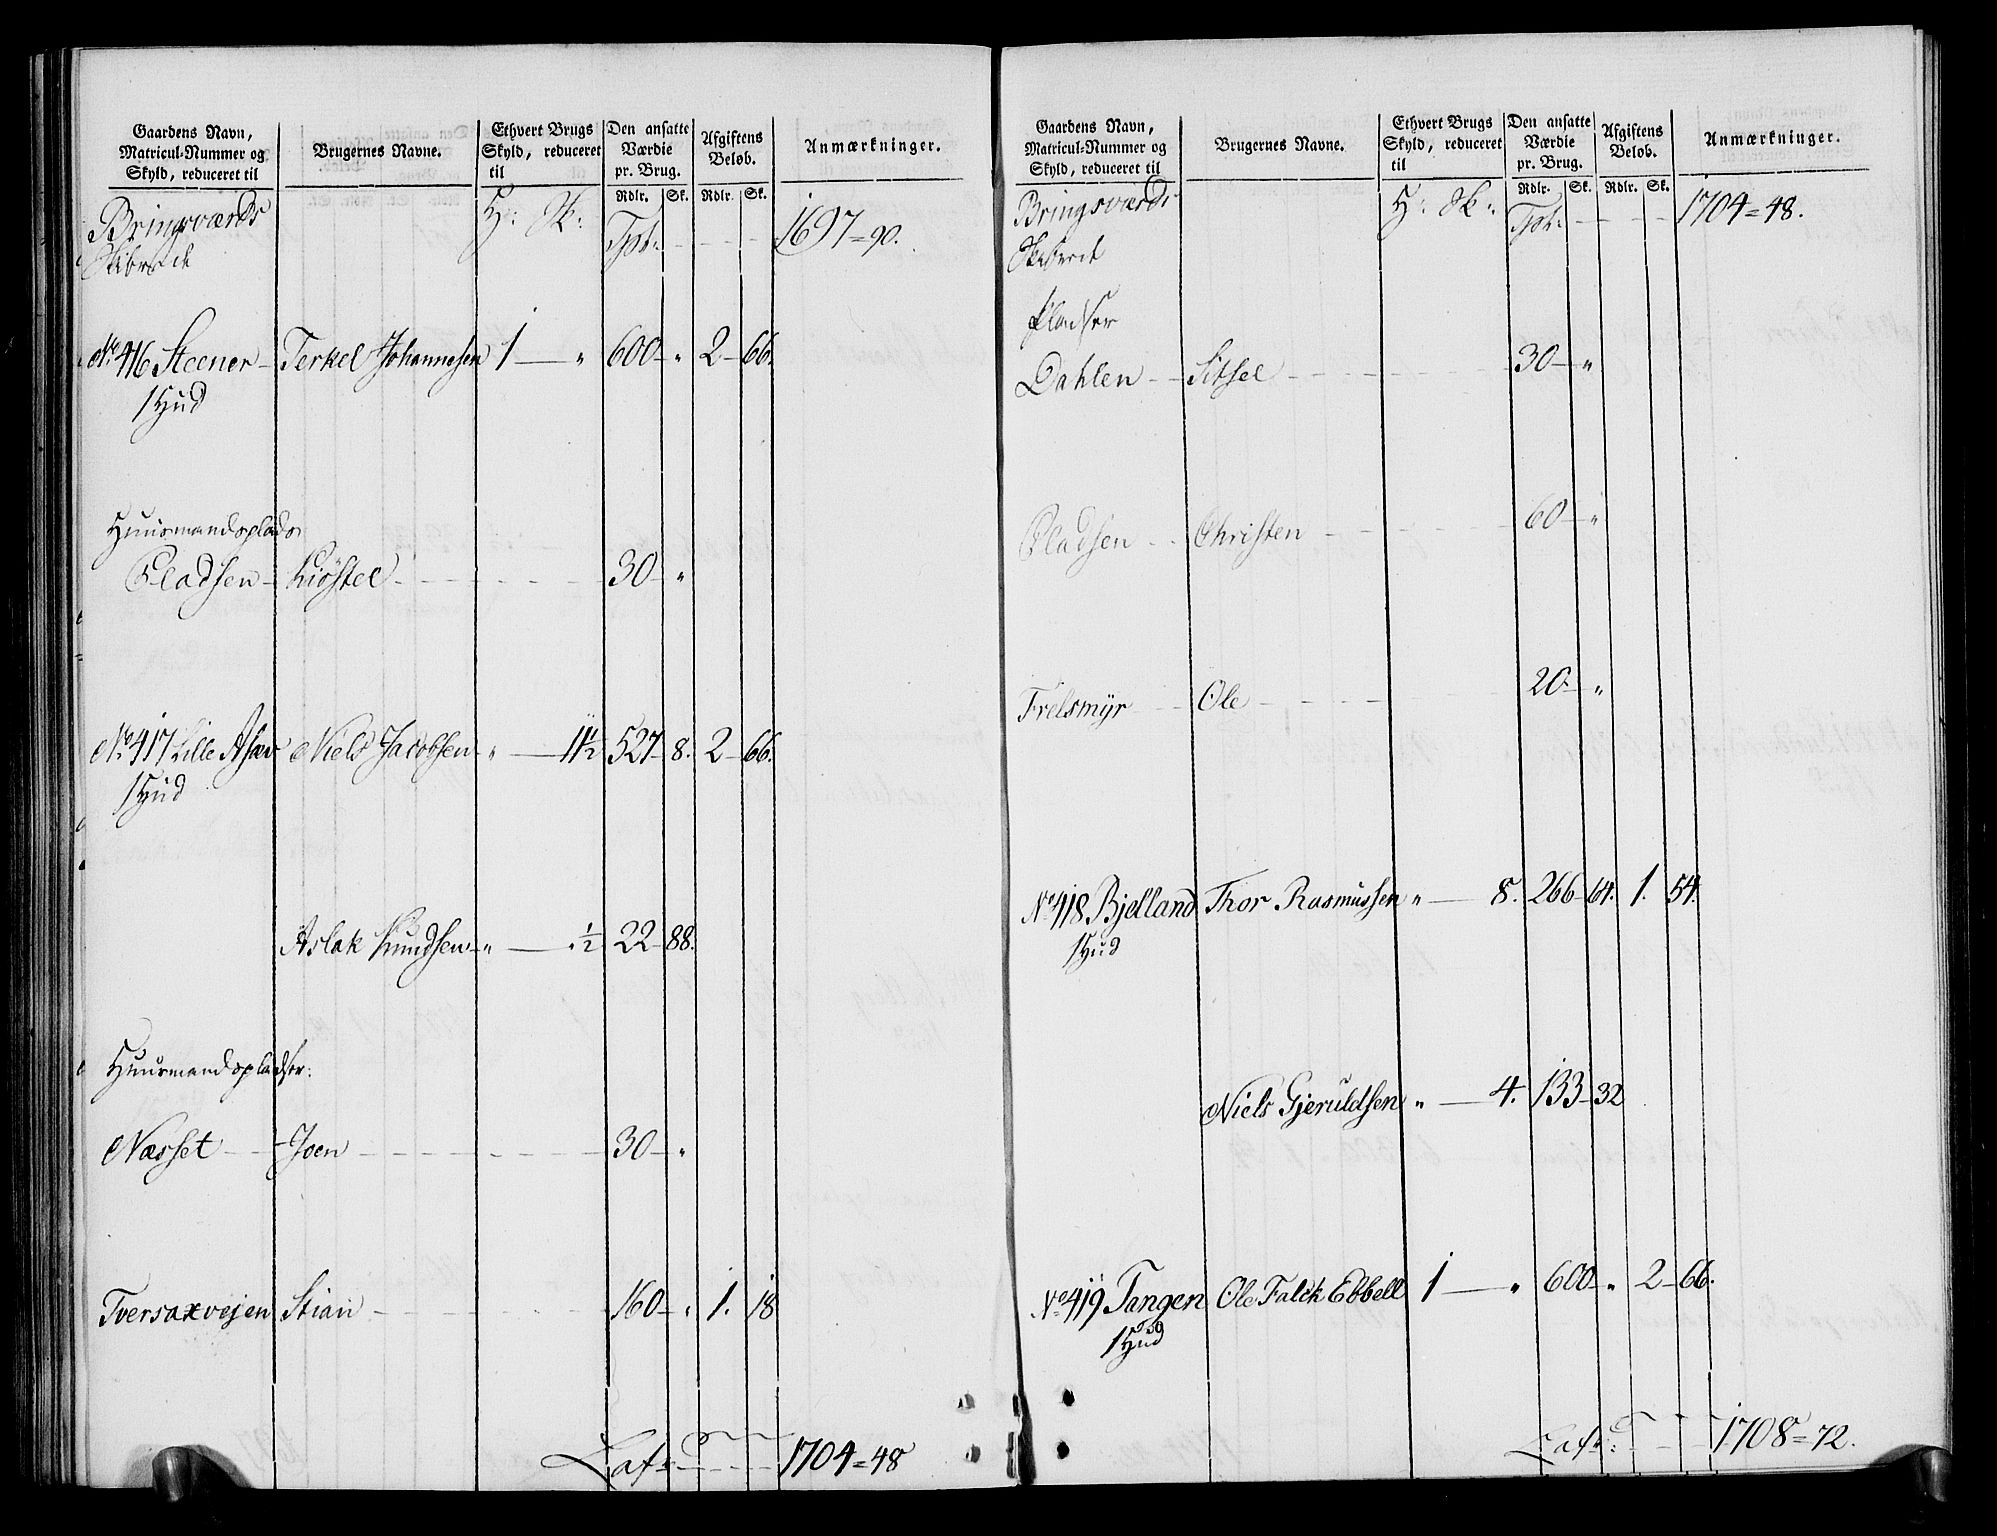 Gaardens Navn,
Matricul-Nummer og
Skyld, reduceret til
Brugernes Navne.
Ethvert Brugs
Skyld, reduceret
til
Den ansatte
Værdie
pr. Brug.
Afgiftens
Beløb.
Anmærkninger.
Rdlr. Sk. Rdlr. Sk.
Bringsværds H: Sk: Tpt: 1697=90.
Skibrede
No. 416 Steener Terkel Johannesen 1 — " 600 " 2 66.
1 Hud
Huusmandsplads
Pladsen Kiöstel 30 "
No. 417 Lille Asæv Niels Jacobsen " — 11½ 527 8. 2 66.
1 Hud
Aslak Knudsen " — ½ 22 88.
Huusmandspladser:
Næsset Joen 30 "
Tversaxvejen Stian 160 " 1. 18
Lat: 1704=48
Gaardens Navn,
Matricul-Nummer og
Skyld, reduceret til
Brugernes Navne.
Ethvert Brugs
Skyld, reduceret
til
Den ansatte
Værdie
pr. Brug.
Afgiftens
Beløb.
Anmærkninger.
Rdlr. Sk. Rdlr. Sk.
Bringsværds H: Sk: Tpt: 1704=48.
Skibrede
Pladser
Dahlen Sitsel 30 "
Pladsen Christen 60 "
Frelsmÿr Ole 20 "
No. 418 Bjelland Thor Rasmussen " — 8. 266 64. 1. 54.
1 Hud
Niels Gjeruldsen " — 4. 133 32
No. 419 Tangen Ole Falck Ebbell 1 — " 600 " 2 66.
1 Hud
Lat: 1708=72.